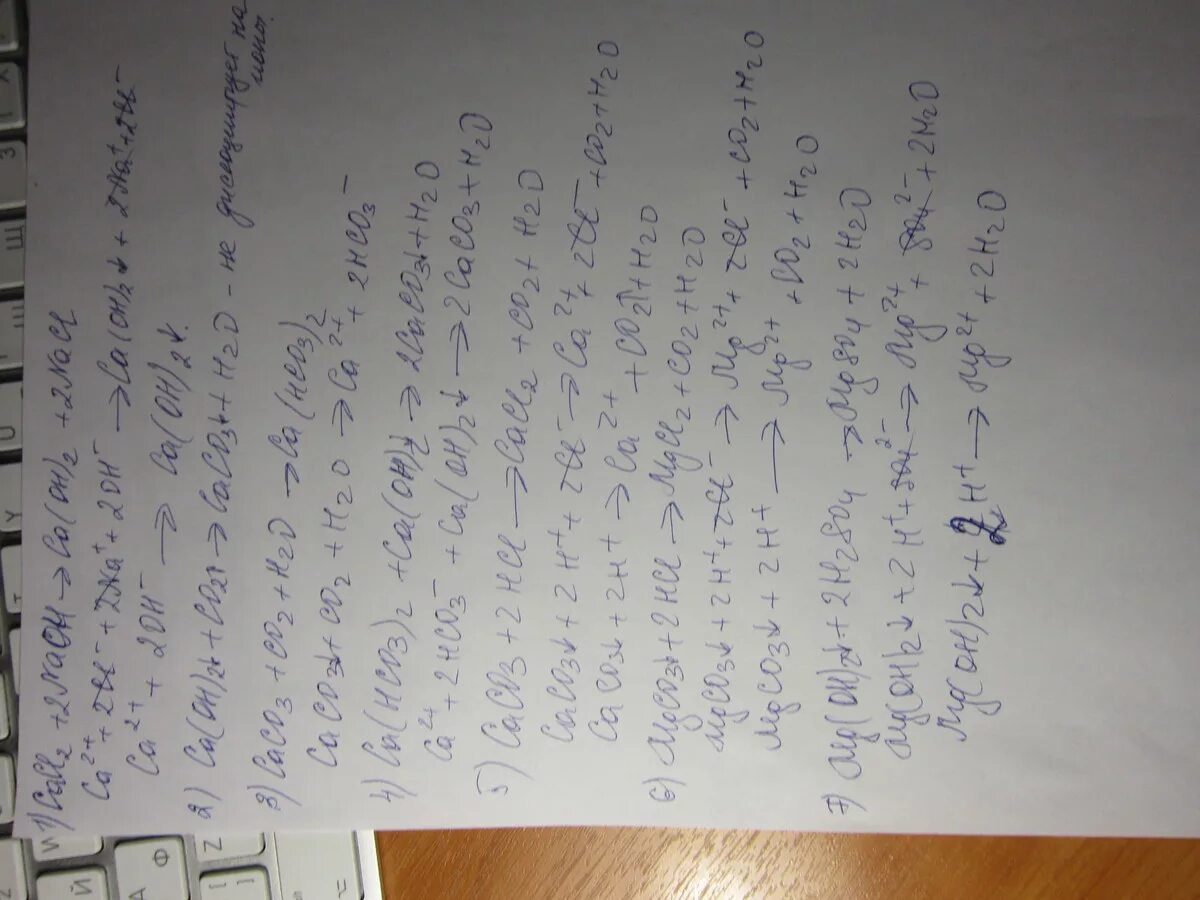 1) CaCl₂ + 2NaOH → Ca(OH)₂ + 2NaCl
Ca²⁺ + 2Cl⁻ + 2Na⁺ + 2OH⁻ → Ca(OH)₂↓ + 2Na⁺ + 2Cl⁻
Ca²⁺ + 2OH⁻ → Ca(OH)₂↓.
2) Ca(OH)₂↓ + CO₂↑ → CaCO₃↓ + H₂O - не диссоциирует на ионы.
3) CaCO₃ + CO₂ + H₂O → Ca(HCO₃)₂
CaCO₃↓ + CO₂ + H₂O → Ca²⁺ + 2HCO₃⁻
4) Ca(HCO₃)₂ + Ca(OH)₂ → 2CaCO₃↓ + H₂O
Ca²⁺ + 2HCO₃⁻ + Ca(OH)₂↓ → 2CaCO₃ + H₂O
5) CaCO₃ + 2HCl → CaCl₂ + CO₂ + H₂O
CaCO₃↓ + 2H⁺ + 2Cl⁻ → Ca²⁺ + 2Cl⁻ + CO₂ + H₂O
CaCO₃↓ + 2H⁺ → Ca²⁺ + CO₂↑ + H₂O
6) MgCO₃↓ + 2HCl → MgCl₂ + CO₂ + H₂O
MgCO₃↓ + 2H⁺ + 2Cl⁻ → Mg²⁺ + 2Cl⁻ + CO₂ + H₂O
MgCO₃↓ + 2H⁺ → Mg²⁺ + CO₂ + H₂O
7) Mg(OH)₂↓ + 2H₂SO₄ → MgSO₄ + 2H₂O
Mg(OH)₂↓ + 2H⁺ + SO₄²⁻ → Mg²⁺ + SO₄²⁻ + 2H₂O
Mg(OH)₂↓ + 2H⁺ → Mg²⁺ + 2H₂O